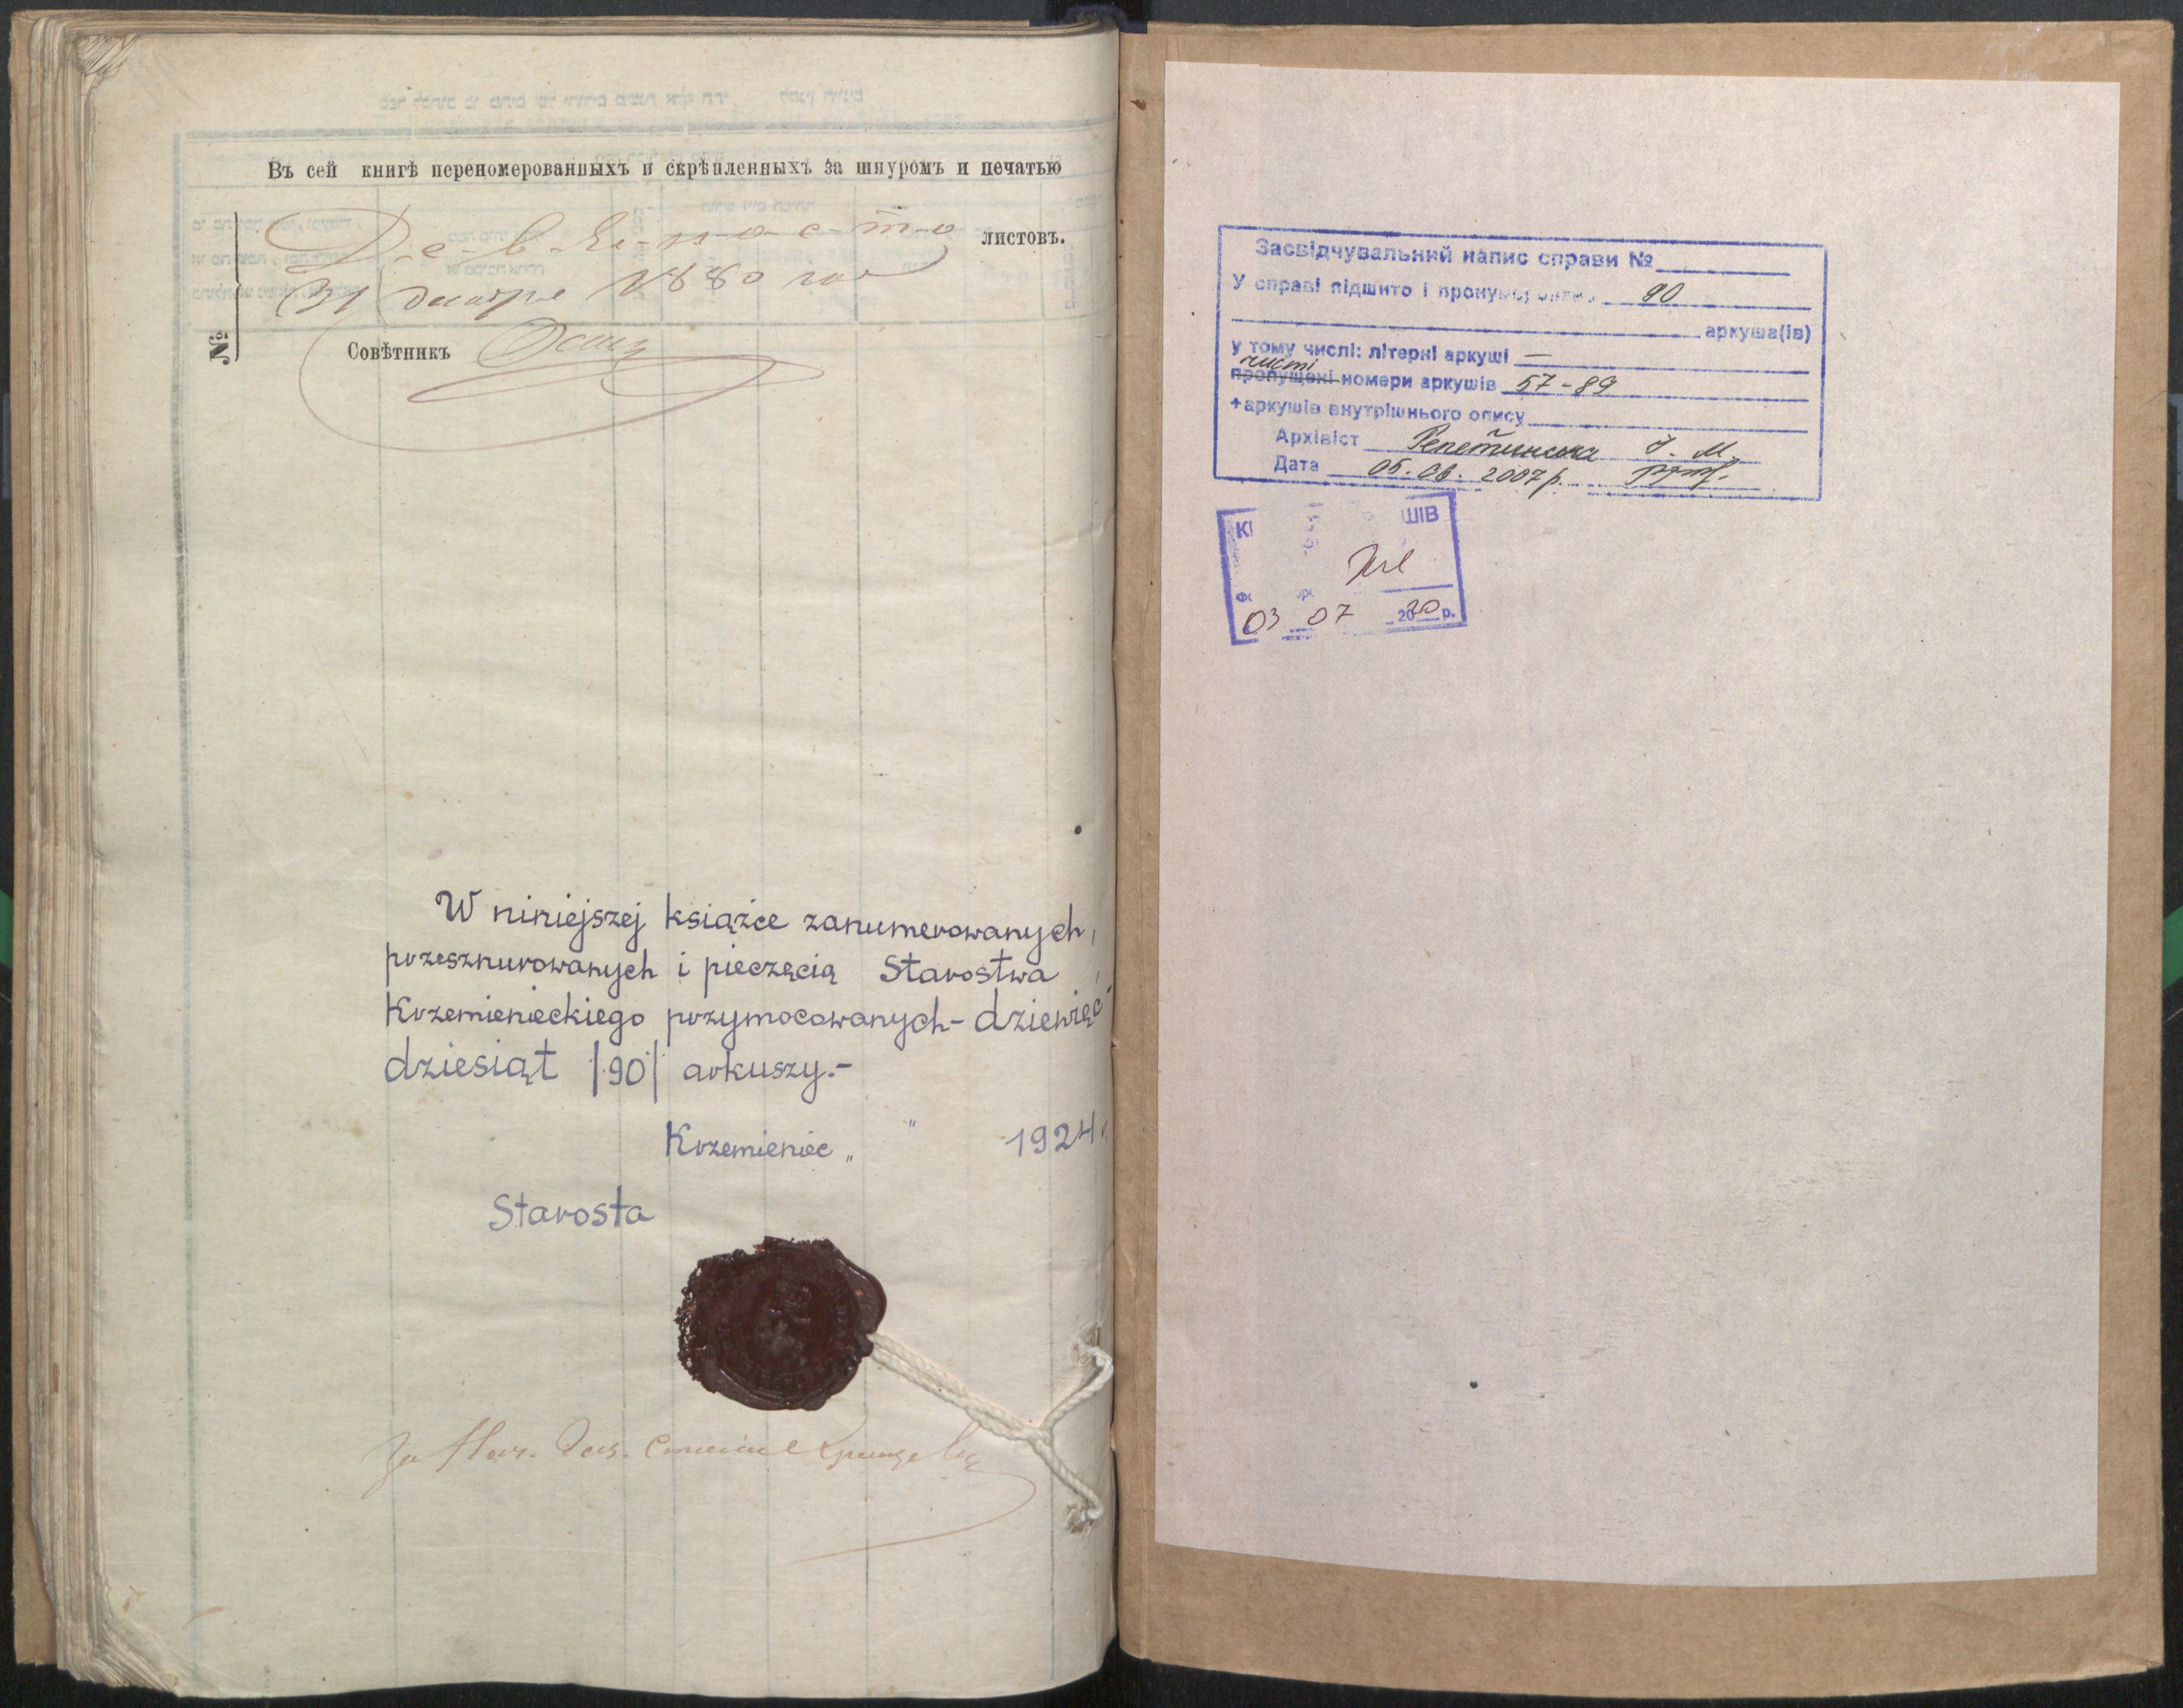 Въ сей книгѣ переномерованныхъ и скрѣпленныхъ за шнуромъ и печатью
Д-е-в-я-н-о-с-т-о листовъ.
31 1880
№
Совѣтникъ
W niniejszej książce zanumerowanych,
przesznurowanych i pieczęcią Starostwa
Krzemienieckiego przymocowanych - dziewięć
dziesiąt /90/ arkuszy.-
Krzemieniec „ " 1924 r.
Starosta
Засвідчувальний напис справи №
У справі підшито і пронумеровано 90
аркуша(ів)
у тому числі: літерні аркуші —
чисті
пропущені номери аркушів 57-89
+аркушів внутрішнього опису
Архівіст Репетинська І. М.
Дата 05.06.2007р.
ШІВ
03 07 2020 р.